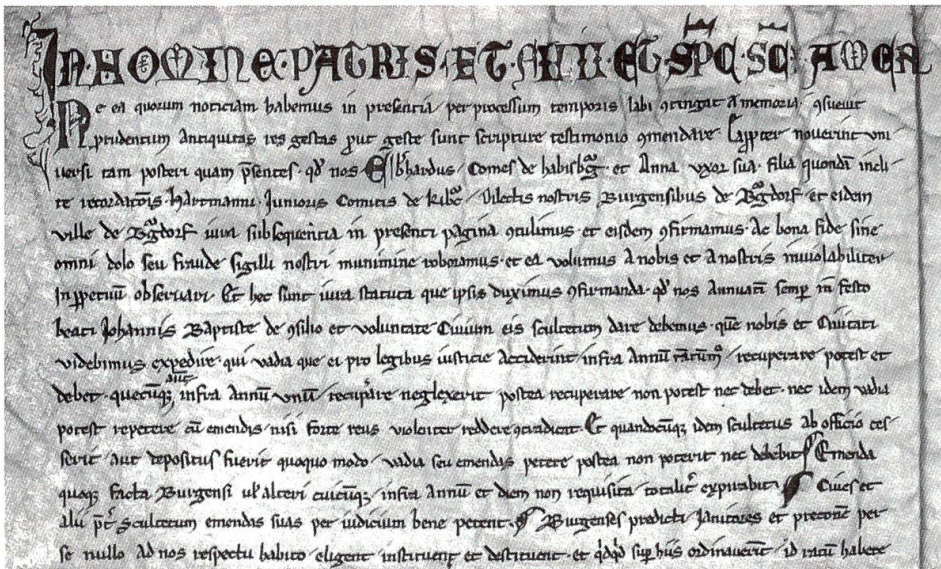 IN NOMINE PATRIS ET FILII ET SP̄C SC̄ AMEN
Ne ea quorum noticiam habemus in presentia per processum temporis labi ꝯtingat a memoria ꝯsuevit
prudentum Antiquitas res gestas put geste sunt scripture testimonio ꝯmendare Eapp̱ter noverint vni
versi tam posteri quam p̄sentes qd̄ nos Ebhardus Comes de habisb̄g et Anna vxor sua filia quondā incli
te recordatōis Hartmanni Junioris Comitis de kib̄g Dilectis nostris Burgensibus de B̄gdorf et eidem
ville de B̄gdorf iura subsequencia in presenti pagina ꝯtulimus et eisdem ꝯfirmamus Ac bona fide sine
omni dolo seu fraude sigilli nostri munimine roboramus et ea volumus A nobis et A nostris inviolabiliter
In ꝑpetuū observari Et hec sunt iura statuta que ipsis duximus ꝯfirmanda qd̄ nos Annuatī semꝑ in festo
beati Johannis Baptiste de ꝯsilio et voluntate Civium eis scultetum dare debemus quē nobis et Civitati
videbimus expedire qui vadia que ei pro legibus iusticie Acciderint infra Annū recuperare potest et
debet quecūqꝫ aut̄ infra Annū vnū recupare neglexerit postea recuperare non potest nec debet nec idem vadia
potest repetere cū emendis nisi forte reus violenter reddere ꝯtradicat Et quandocūqꝫ idem scultetus ab officio ces
serit aut depositus fuerit quoquo modo vadia seu emendas petere postea non poterit nec debebit Emenda
quoqꝫ facta Burgensi ul̄ alteri cuicūqꝫ infra Annū et diem non requisita totalit̄ expirabit Cives et
alii p̄t̄ Scultetum emendas suas per iudicium bene petent Burgenses predicti Janitores et preconē per
se nullo Ad nos respectu habito eligent instituent et destituent et qd̄qd̄ suꝑ hiis ordinaverīt id ratū habere